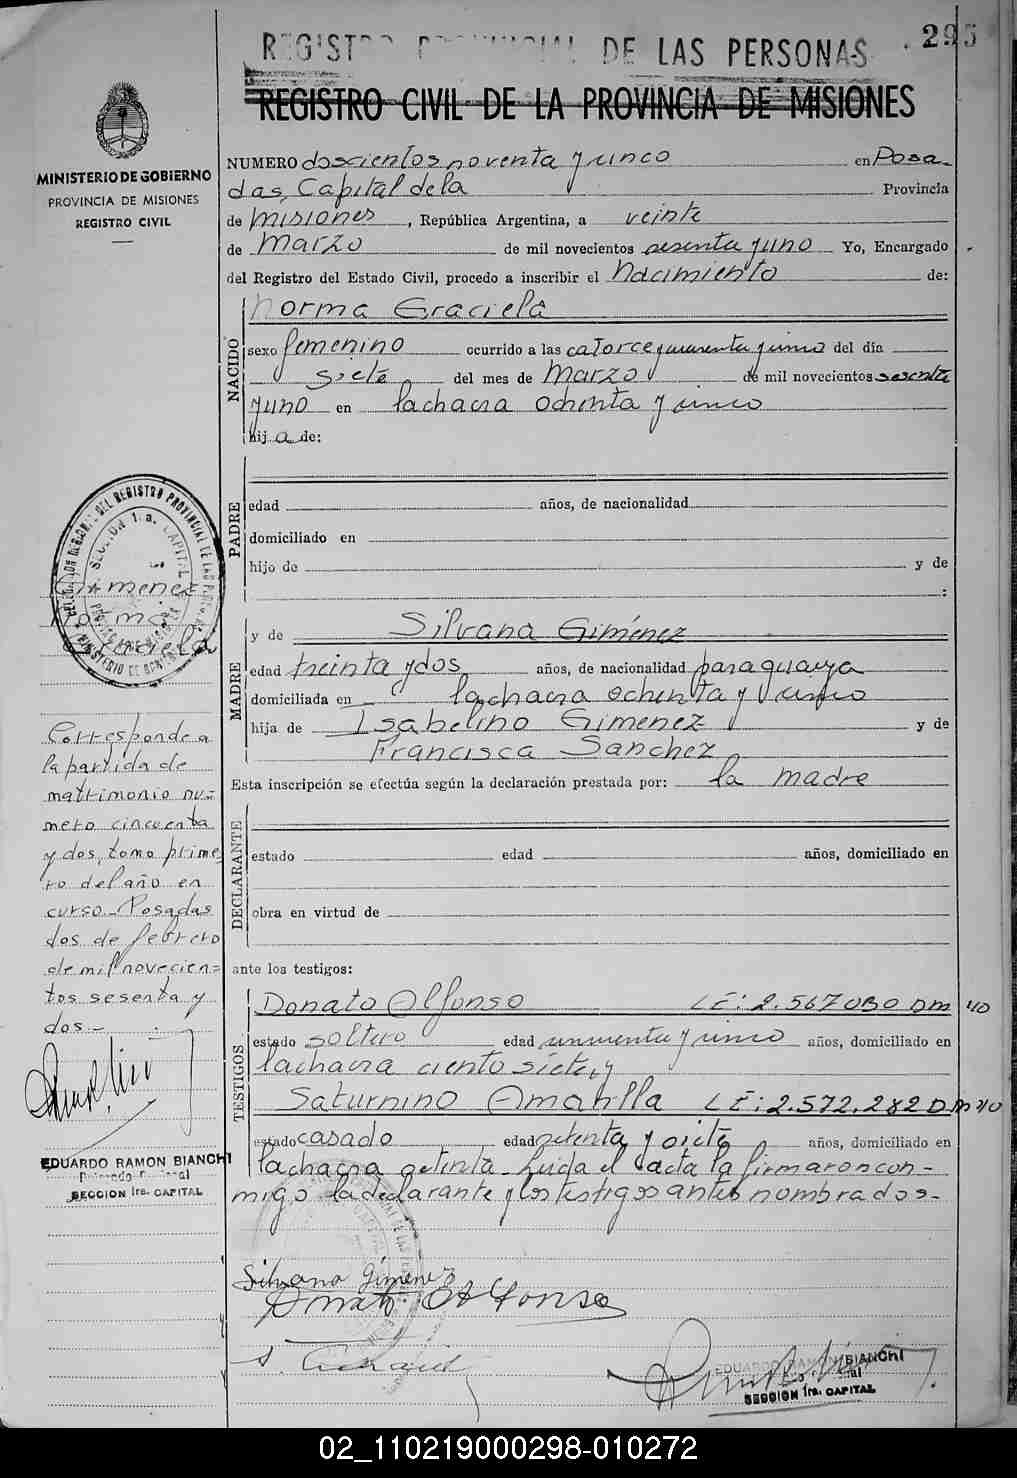 REGISTRO PROVINCIAL DE LAS PERSONAS
295
REGISTRO CIVIL DE LA PROVINCIA DE MISIONES
MINISTERIO DE GOBIERNO
PROVINCIA DE MISIONES
REGISTRO CIVIL
NUMERO doscientos noventa y cinco en Posa-
das, Capital de la Provincia
de Misiones, República Argentina, a veinte
de Marzo de mil novecientos sesenta y uno Yo, Encargado
del Registro del Estado Civil, procedo a inscribir el Nacimiento de:
NACIDO
Norma Graciela
sexo femenino ocurrido a las catorce y cuarenta y cinco del día
siete del mes de Marzo de mil novecientos sesenta
y uno en la chacra ochenta y cinco
hija de:
PADRE
edad años, de nacionalidad
domiciliado en
hijo de y de
:
MADRE
y de Silvana Giménez
edad treinta y dos años, de nacionalidad paraguaya
domiciliada en la chacra ochenta y cinco
hija de Isabelino Gimenez y de
Francisca Sanchez
Esta inscripción se efectúa según la declaración prestada por: la madre
DECLARANTE
estado edad años, domiciliado en
obra en virtud de
ante los testigos:
TESTIGOS
Donato Alfonso LE: 2.567.030 DM 40
estado soltero edad cincuenta y cinco años, domiciliado en
la chacra ciento siete, y
Saturnino Amarilla LE: 2.572.282 DM 40
estado casado edad setenta y siete años, domiciliado en
la chacra setenta. Leída el acta la firmaron con-
migo la declarante y los testigos antes nombrados-
Silvana Gimenez
Donato Alfonso
EDUARDO RAMON BIANCHI
SECCION 1ra. CAPITAL
Gimenez
Norma
Graciela
SECCION 1ra. CAPITAL
Corresponde a
la partida de
matrimonio nu-
mero cincuenta
y dos, tomo prime
ro del año en
curso - Posadas
dos de febrero
de mil novecien=
tos sesenta y
dos.-
EDUARDO RAMON BIANCHI
SECCION 1ra. CAPITAL
02_110219000298-010272